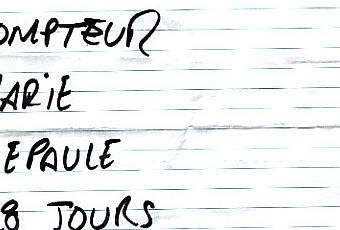 OMPTEUR
ARIE
EPAULE
8 JOURS